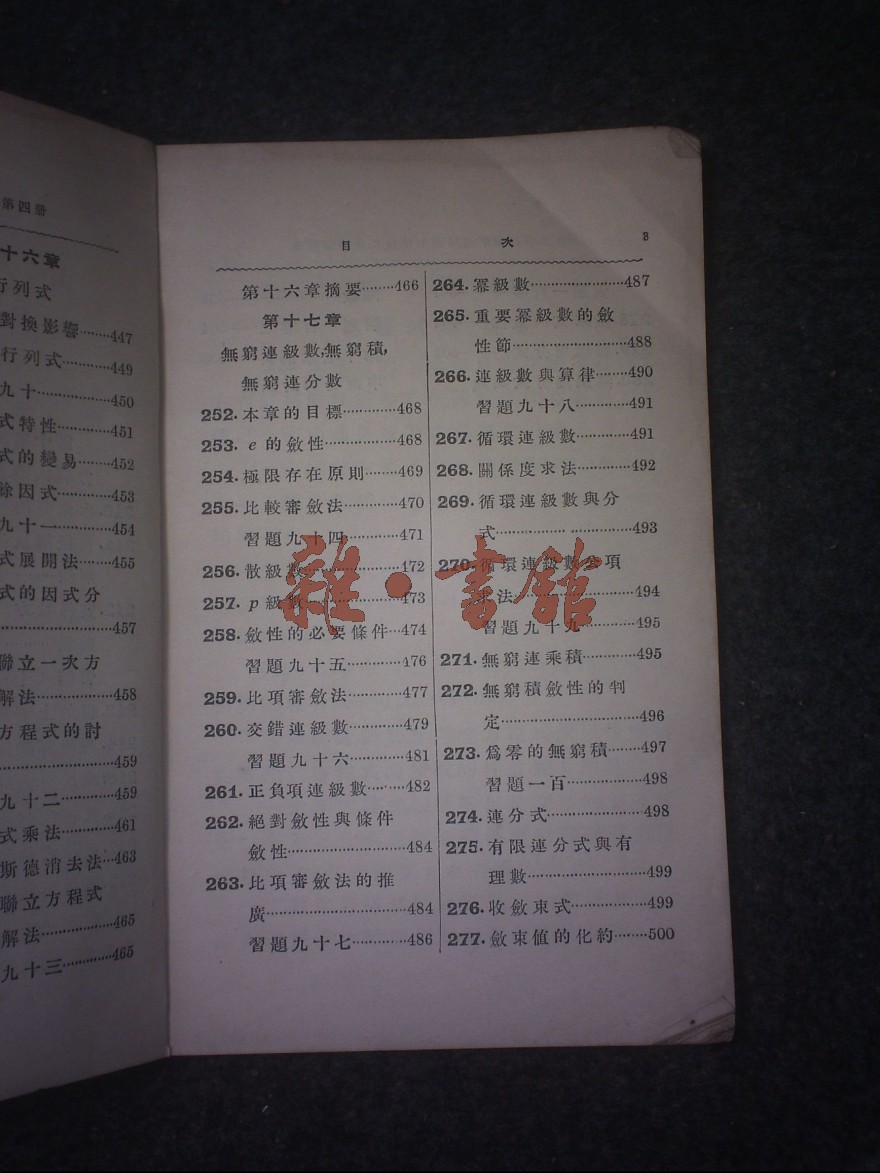 第四册
十六章
行列式
對換影響········447
行列式········449
九十········450
式特性········451
式的變易····452
餘因式········453
九十一········454
式展開法····455
式的因式分
········457
聯立一次方
解法········458
方程式的討
········459
九十二········459
式乘法········461
斯德消去法···463
聯立方程式
解法········465
九十三········465
目 次 3
第十六章摘要········466
第十七章
無窮連級數,無窮積,
無窮連分數
252. 本章的目標········468
253. e 的斂性········468
254. 極限存在原則········469
255. 比較審斂法········470
習題九十四········471
256. 散級數········472
257. p 級數········473
258. 斂性的必要條件···474
習題九十五········476
259. 比項審斂法········477
260. 交錯連級數········479
習題九十六········481
261. 正負項連級數········482
262. 絕對斂性與條件
斂性········484
263. 比項審斂法的推
廣········484
習題九十七········486
264. 冪級數········487
265. 重要冪級數的斂
性節········488
266. 連級數與算律········490
習題九十八········491
267. 循環連級數········491
268. 關係度求法········492
269. 循環連級數與分
式········493
270. 循環連級數公項
求法········494
習題九十九········495
271. 無窮連乘積········495
272. 無窮積斂性的判
定········496
273. 爲零的無窮積········497
習題一百········498
274. 連分式········498
275. 有限連分式與有
理數········499
276. 收斂束式········499
277. 斂束值的化約········500
雜·書館